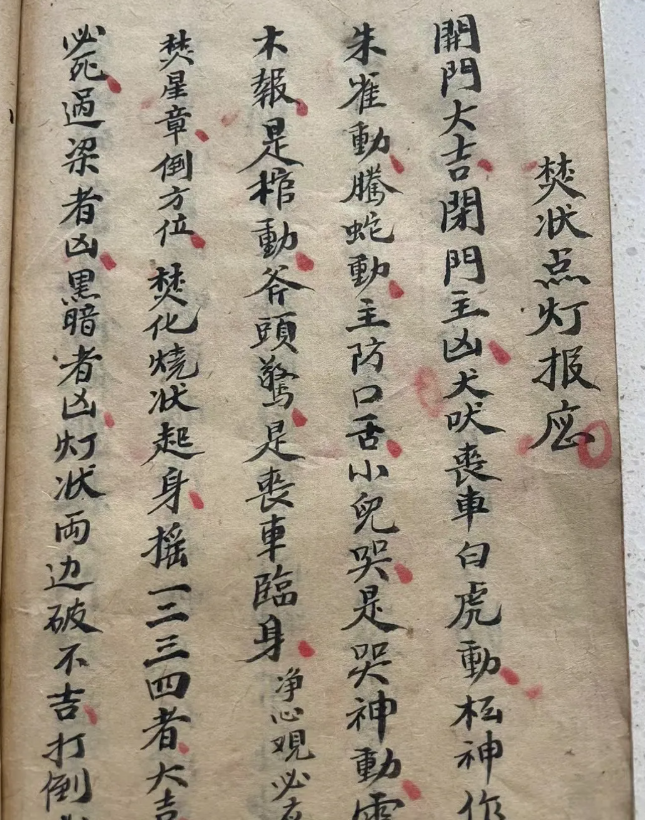 焚状点灯报应
開門大吉閉門主凶犬吠喪車白虎動枉神作
朱雀動騰蛇動主防口舌小兒哭是哭神動
木報是棺動斧頭驚是喪車臨身
净心观必有
焚星章倒方位焚化烧状起身摇一二三四者大吉
必死過梁者凶黑暗者凶灯状両边破不吉打倒